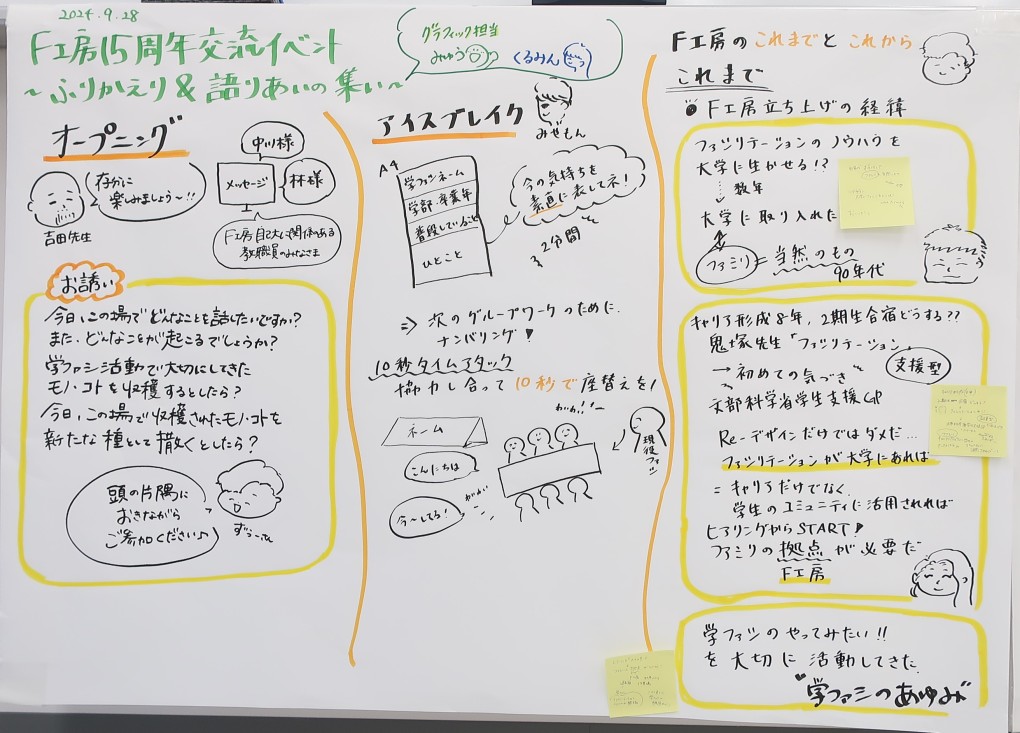 2024.9.28
F工房15周年交流イベント
～ふりかえり&語りあいの集い～
グラフィック担当
みゅう
くるみん
オープニング
存分に
楽しみましょう～!!
吉田先生
中川様
メッセージ
林様
F工房・自己大に関係のある
教職員のみなさま
お誘い
今日、この場でどんなことを話したいですか?
また、どんなことが起こるでしょうか?
学ファシ活動で大切にしてきた
モノ・コトを収穫するとしたら?
今日、この場で収穫されたモノ・コトを
新たな種として撒くとしたら?
頭の片隅に
おきながら
ご参加ください♪
アイスブレイク
みぜもん
A4
学ファシネーム
学部・卒業年
普段していること
ひとこと
今の気持ちを
素直に表してネ!
2分間
⇒ 次のグループワークのために、
ナンバリング!
10秒タイムアタック
協力し合って10秒で座替えを!
ネーム
こんにちは
今～してる!
がやがや
わぁ!!
現役ファシ
F工房のこれまでとこれから
これまで
● F工房立ち上げの経緯
ファシリテーションのノウハウを
大学に生かせる!?
数年
大学に取り入れた
ファシリ=当然のもの
90年代
キャリア形成8年、2期生合宿どうする??
鬼塚先生「ファシリテーション」
→初めての気づき
支援型
文部科学省学生支援GP
Re-デザインだけではダメだ…
ファシリテーションが大学にあれば
=キャリアだけでなく、
学生のコミュニティに活用されれば
ヒアリングからSTART!
ファシリの拠点が必要だ
F工房
学ファシのやってみたい!!
を大切に活動してきた
学ファシのあゆみ